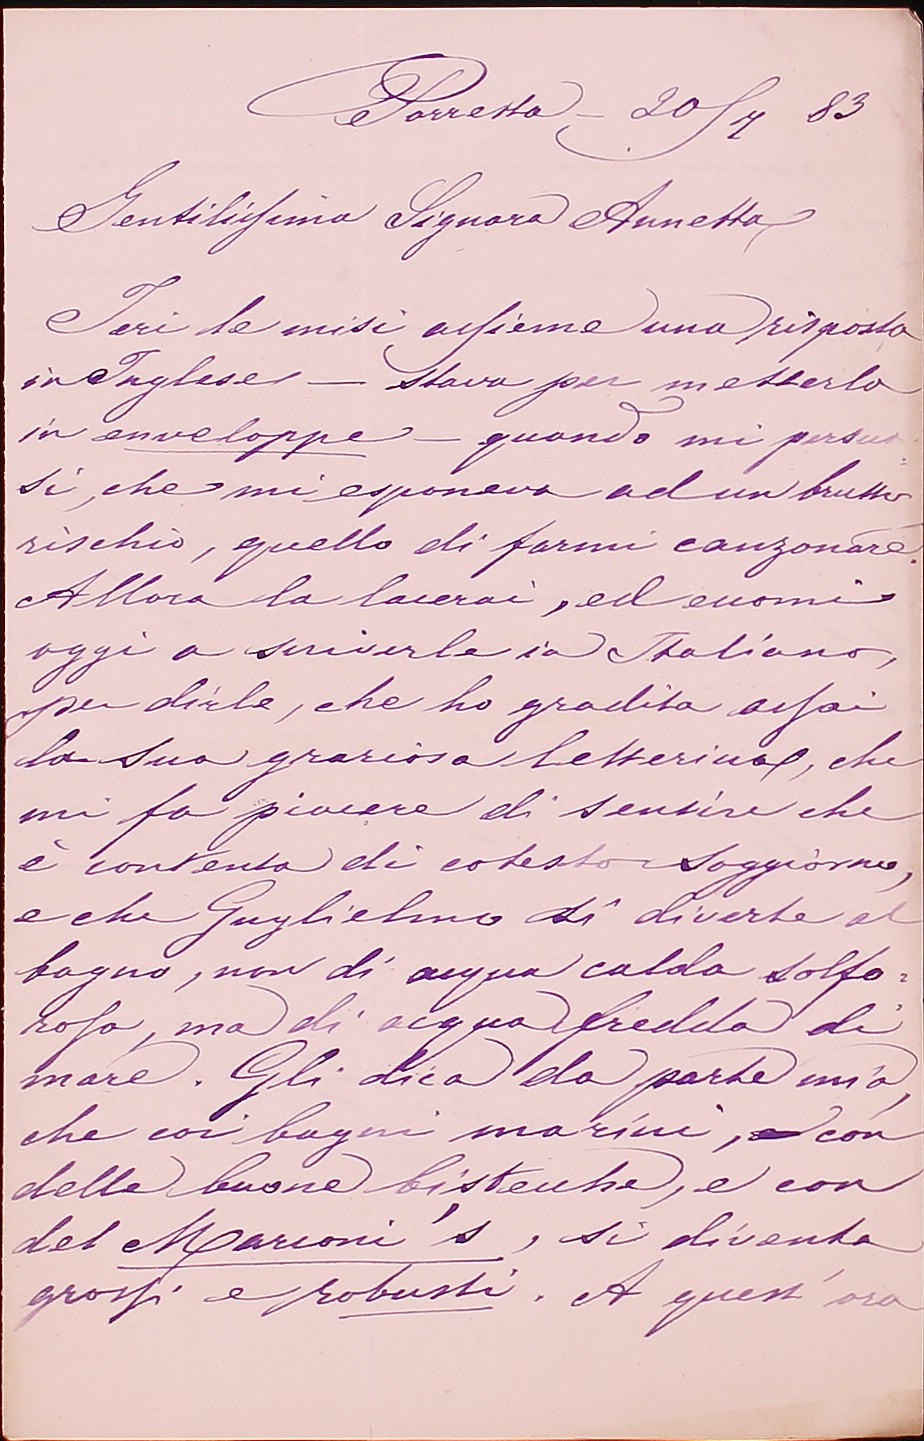 Porretta – 20/7 83
Gentilissima Signora Annetta
Ieri le misi assieme una risposta
in Inglese — stava per metterla
in enveloppe — quando mi persua=
si, che mi esponeva ad un brutto
rischio, quello di farmi canzonare.
Allora la lacerai, ed eccomi
oggi a scriverle in Italiano,
per dirle, che ho gradita assai
la sua graziosa letterina, che
mi fa piacere di sentire che
è contenta di cotesto soggiorno,
e che Guglielmo si diverte al
bagno, non di acqua calda solfo=
rosa, ma di acqua fredda di
mare. Gli dica da parte mia,
che coi bagni marini, con
delle buone bistecche, e con
del Marconi's, si diventa
grossi e robusti. A quest'ora